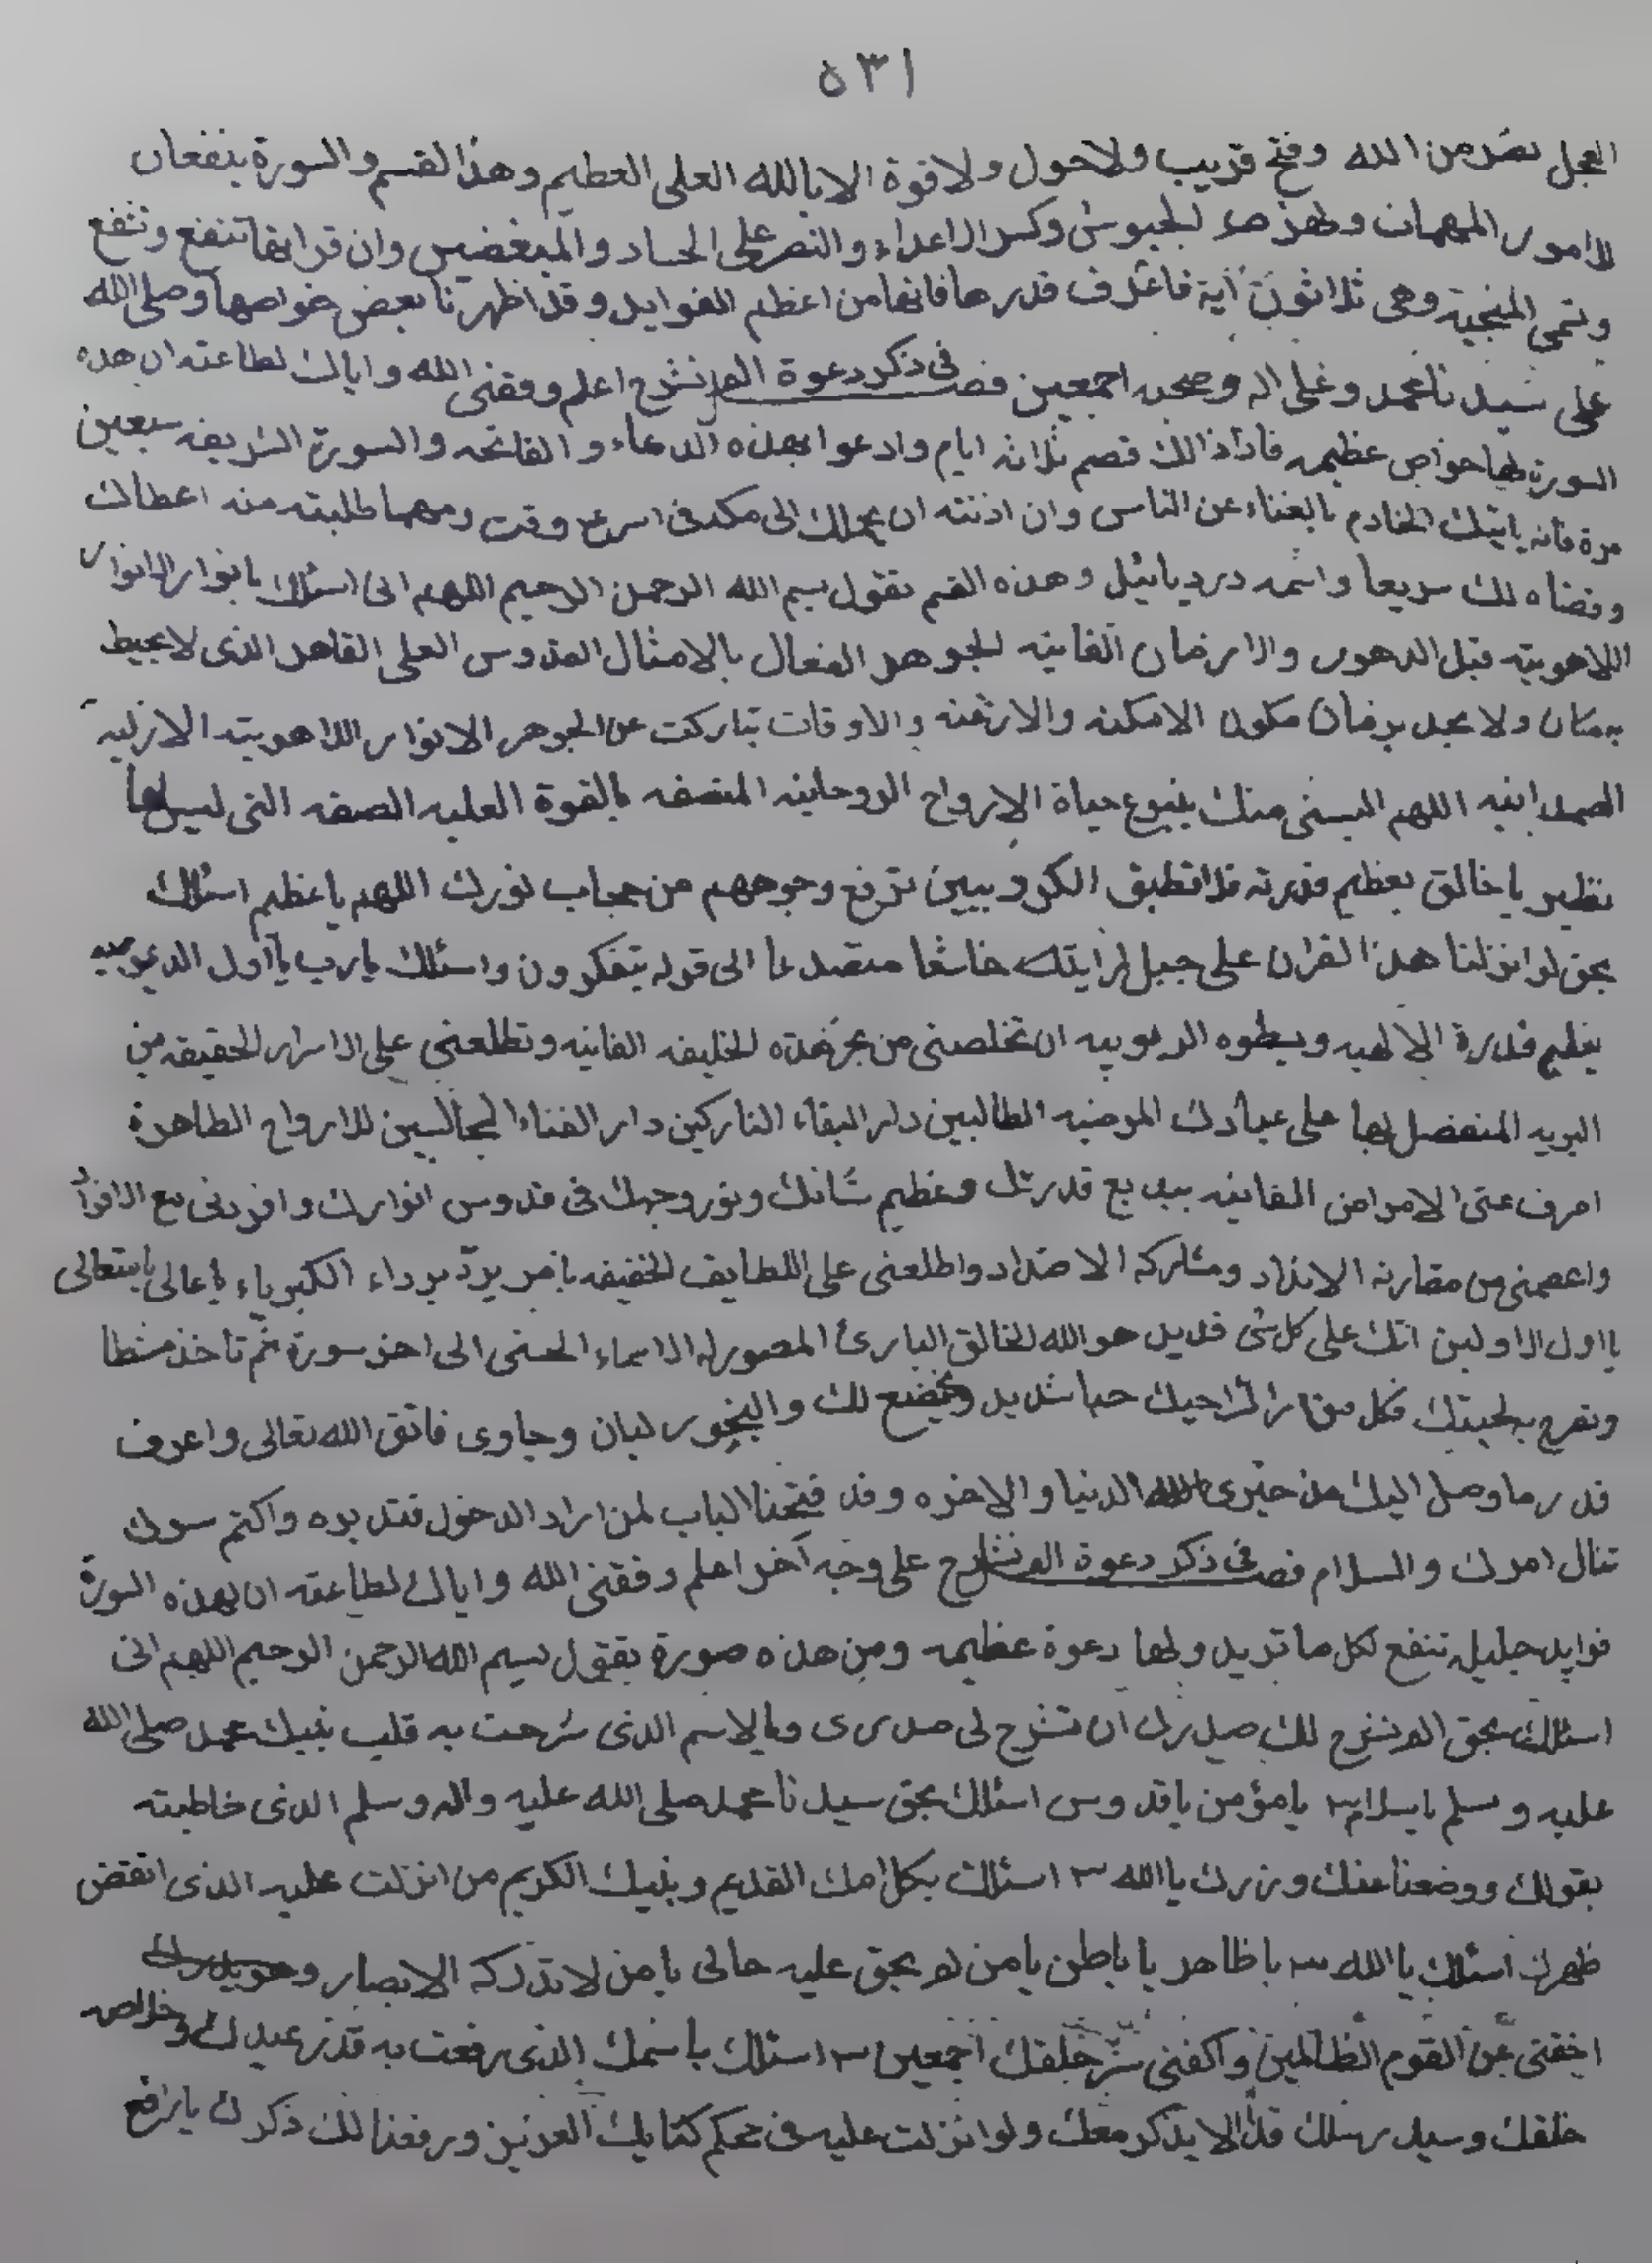 ٥٣١
العجل نصر من الله وفتح قريب ولاحول ولا قوة الا بالله العلى العظيم وهذا القسم والسورة ينفعان
للامور المهمات ولهزم الجيوش وكسر الاعداء والنصر على الحساد والمبغضين وان قرايتها تنفع وتنفع
وتسمى المنجية وهى ثلاثون آية فاعرف قدرها فانها من اعظم الفوايد وقد اظهرنا بعض خواصها وصلى الله
على سيدنا محمد وعلى اله وصحبه اجمعين فصل فى ذكر دعوة الم نشرح اعلم وفقنى الله واياك لطاعته ان هذه
السورة لها خواص عظيمه فاذا ذلك فصم ثلاثه ايام وادعوا بهذه الدعاء والفاتحه والسورة الشريفه سبعين
مرة فانه ياتيك الخادم بالغناء عن الناس وان اذنته ان يحملك الى مكه فى اسرع وقت ومهما طلبته منه اعطاك
وقضاه لك سريعا واسمه دردیائیل وهذه القسم تقول بسم الله الرحمن الرحيم اللهم انى اسئلك بانوار الانوار
اللاهويته قبل الدهور والازمان الفانيه الجوهر الفعال بالامثال القدوس العلى القاهر الذى لا يحيط
به مكان ولا يحد بزمان مكون الامكنه والازمنه والاوقات تباركت عن الجوهر الانوار اللاهويته الازليه
الصمدانيه اللهم البسنى منك ينبوع حياة الارواح الروحانيه المتصفه بالقوة العليه الصفه التى ليس لها
نظير يا خالق بعظيم قدرته فلا تطيق الكروبيين ترفع وجوههم من حجاب نورك اللهم يا عظيم اسئلك
بحق لو انزلنا هذا القران على جبل لرايته خاشعا متصدعا الى قوله يتفكرون واسئلك يارب يا اول الديموميه
بعظيم قدرة الالهيه وبسطوه الربوبيه ان تخلصنى من بحر هذه الخليفه الفانيه وتطلعنى على الاسرار الحقيقه من
البريه المتفضل بها على عبادك المرضيه الطالبين دار البقاء التاركين دار الفناء المجالسين للارواح الطاهرة
اصرف عنى الامراض الفانيه ببديع قدرتك وعظيم شانك ونور وجهك فى قدوس انوارك وافردنى مع الافراد
واعصمنى من مقارنه الانداد ومشاركه الاضداد واطلعنى على اللطايف الخفيفه يا من بردا الكبرياء يا عالى يا متعالى
يا اول الاولين انك على كل شى قدير هو الله الخالق البارئ المصور له الاسماء الحسنى الى اخر سورة ثم تاخذ مشطا
وتسرح به لحيتك فكل من راك احبك حبا شديد ويخضع لك والبخور لبان وجاوى فاتق الله تعالى واعرف
قدر ما وصل اليك من خيرى الدنيا والاخره وقد فتحنا الباب لمن اراد الدخول فتدبره واكتم سرك
تنال امرك والسلام فصل فى ذكر دعوة الم نشرح على وجه آخر اعلم وفقنى الله واياك لطاعته ان لهذه السورة
فوايد جليله تنفع لكل ما تريد ولها دعوة عظيمه ومن هذه صورة يقول بسم الله الرحمن الرحيم اللهم انى
اسئلك بحق الم نشرح لك صدرك ان تشرح لى صدرى وبالاسم الذى شرحت به قلب نبيك محمد صلى الله
عليه وسلم يا سلام ٣ يا مؤمن يا قدوس اسئلك بحق سيدنا محمد صلى الله عليه واله وسلم الذى خاطبته
بقولك ووضعنا عنك وزرك يا الله ٣ اسئلك بكلامك القديم ونبيك الكريم من انزلت عليه الذى انقض
ظهرك اسئلك يا الله ٣ يا ظاهر يا باطن يا من لم يحق عليه حالى يا من لا تدركه الابصار وهو يدرك
اخفنى عن القوم الظالمين واكفنى شر خلقك اجمعين ٣ اسئلك باسمك الذى رفعت به قدر عبدك وخلاصه
خلقك وسيد رسلك فلا الا يذكر معك ولو انزلت عليه فى محكم كتابك العزيز ورفعنا لك ذكرك يا رافع